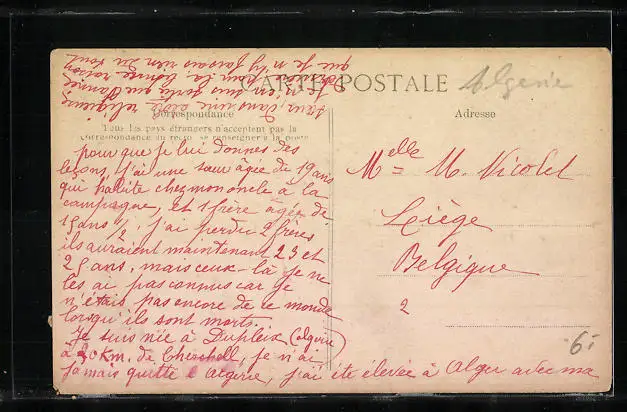 CARTE POSTALE
Algerie
Correspondance
Adresse
Tous les pays étrangers n'acceptent pas la
correspondance au recto. Se renseigner à la poste
pour que je lui donnes des
leçons, j'ai une sœur âgée de 19 ans
qui habite chez mon oncle à la
campagne, et 1 frère âgée de
15 ans ½. j'ai perdu 2 frères
ils auraient maintenant 23 et
25 ans, mais ceux-là je ne
les ai pas connus car je
n'étais pas encore de ce monde
lorsqu'ils sont morts.
Je suis née à Dupleix (Algérie)
à 20 km. de Cherchell, je n'ai
jamais quitté l'Algérie, j'ai été élevée à Alger avec ma
sœur, dans une école religieuse
j'en suis sortie
pour la bonne raison
que je n'y faisais rien du tout
Melle M. Nicolet
Liège
Belgique
2
6.-